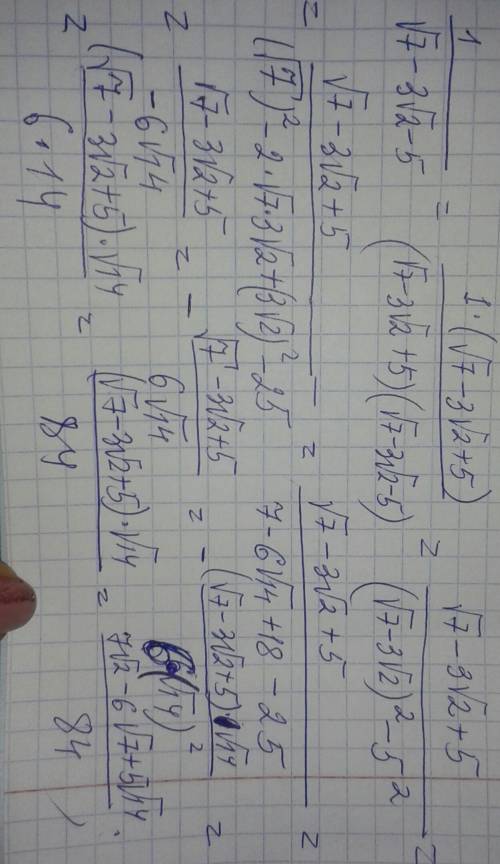 1/(√7 - 3√2 - 5) = 1·(√7 - 3√2 + 5)/((√7 - 3√2 + 5)(√7 - 3√2 - 5)) = (√7 - 3√2 + 5)/((√7 - 3√2)² - 5²) =
= (√7 - 3√2 + 5)/((√7)² - 2·√7·3√2 + (3√2)² - 25) = (√7 - 3√2 + 5)/(7 - 6√14 + 18 - 25) =
= (√7 - 3√2 + 5)/(-6√14) = - (√7 - 3√2 + 5)/(6√14) = - ((√7 - 3√2 + 5)·√14)/(6·(√14)²) =
= ((√7 - 3√2 + 5)·√14)/(6·14) = ((√7 - 3√2 + 5)·√14)/84 = (7√2 - 6√7 + 5√14)/84.